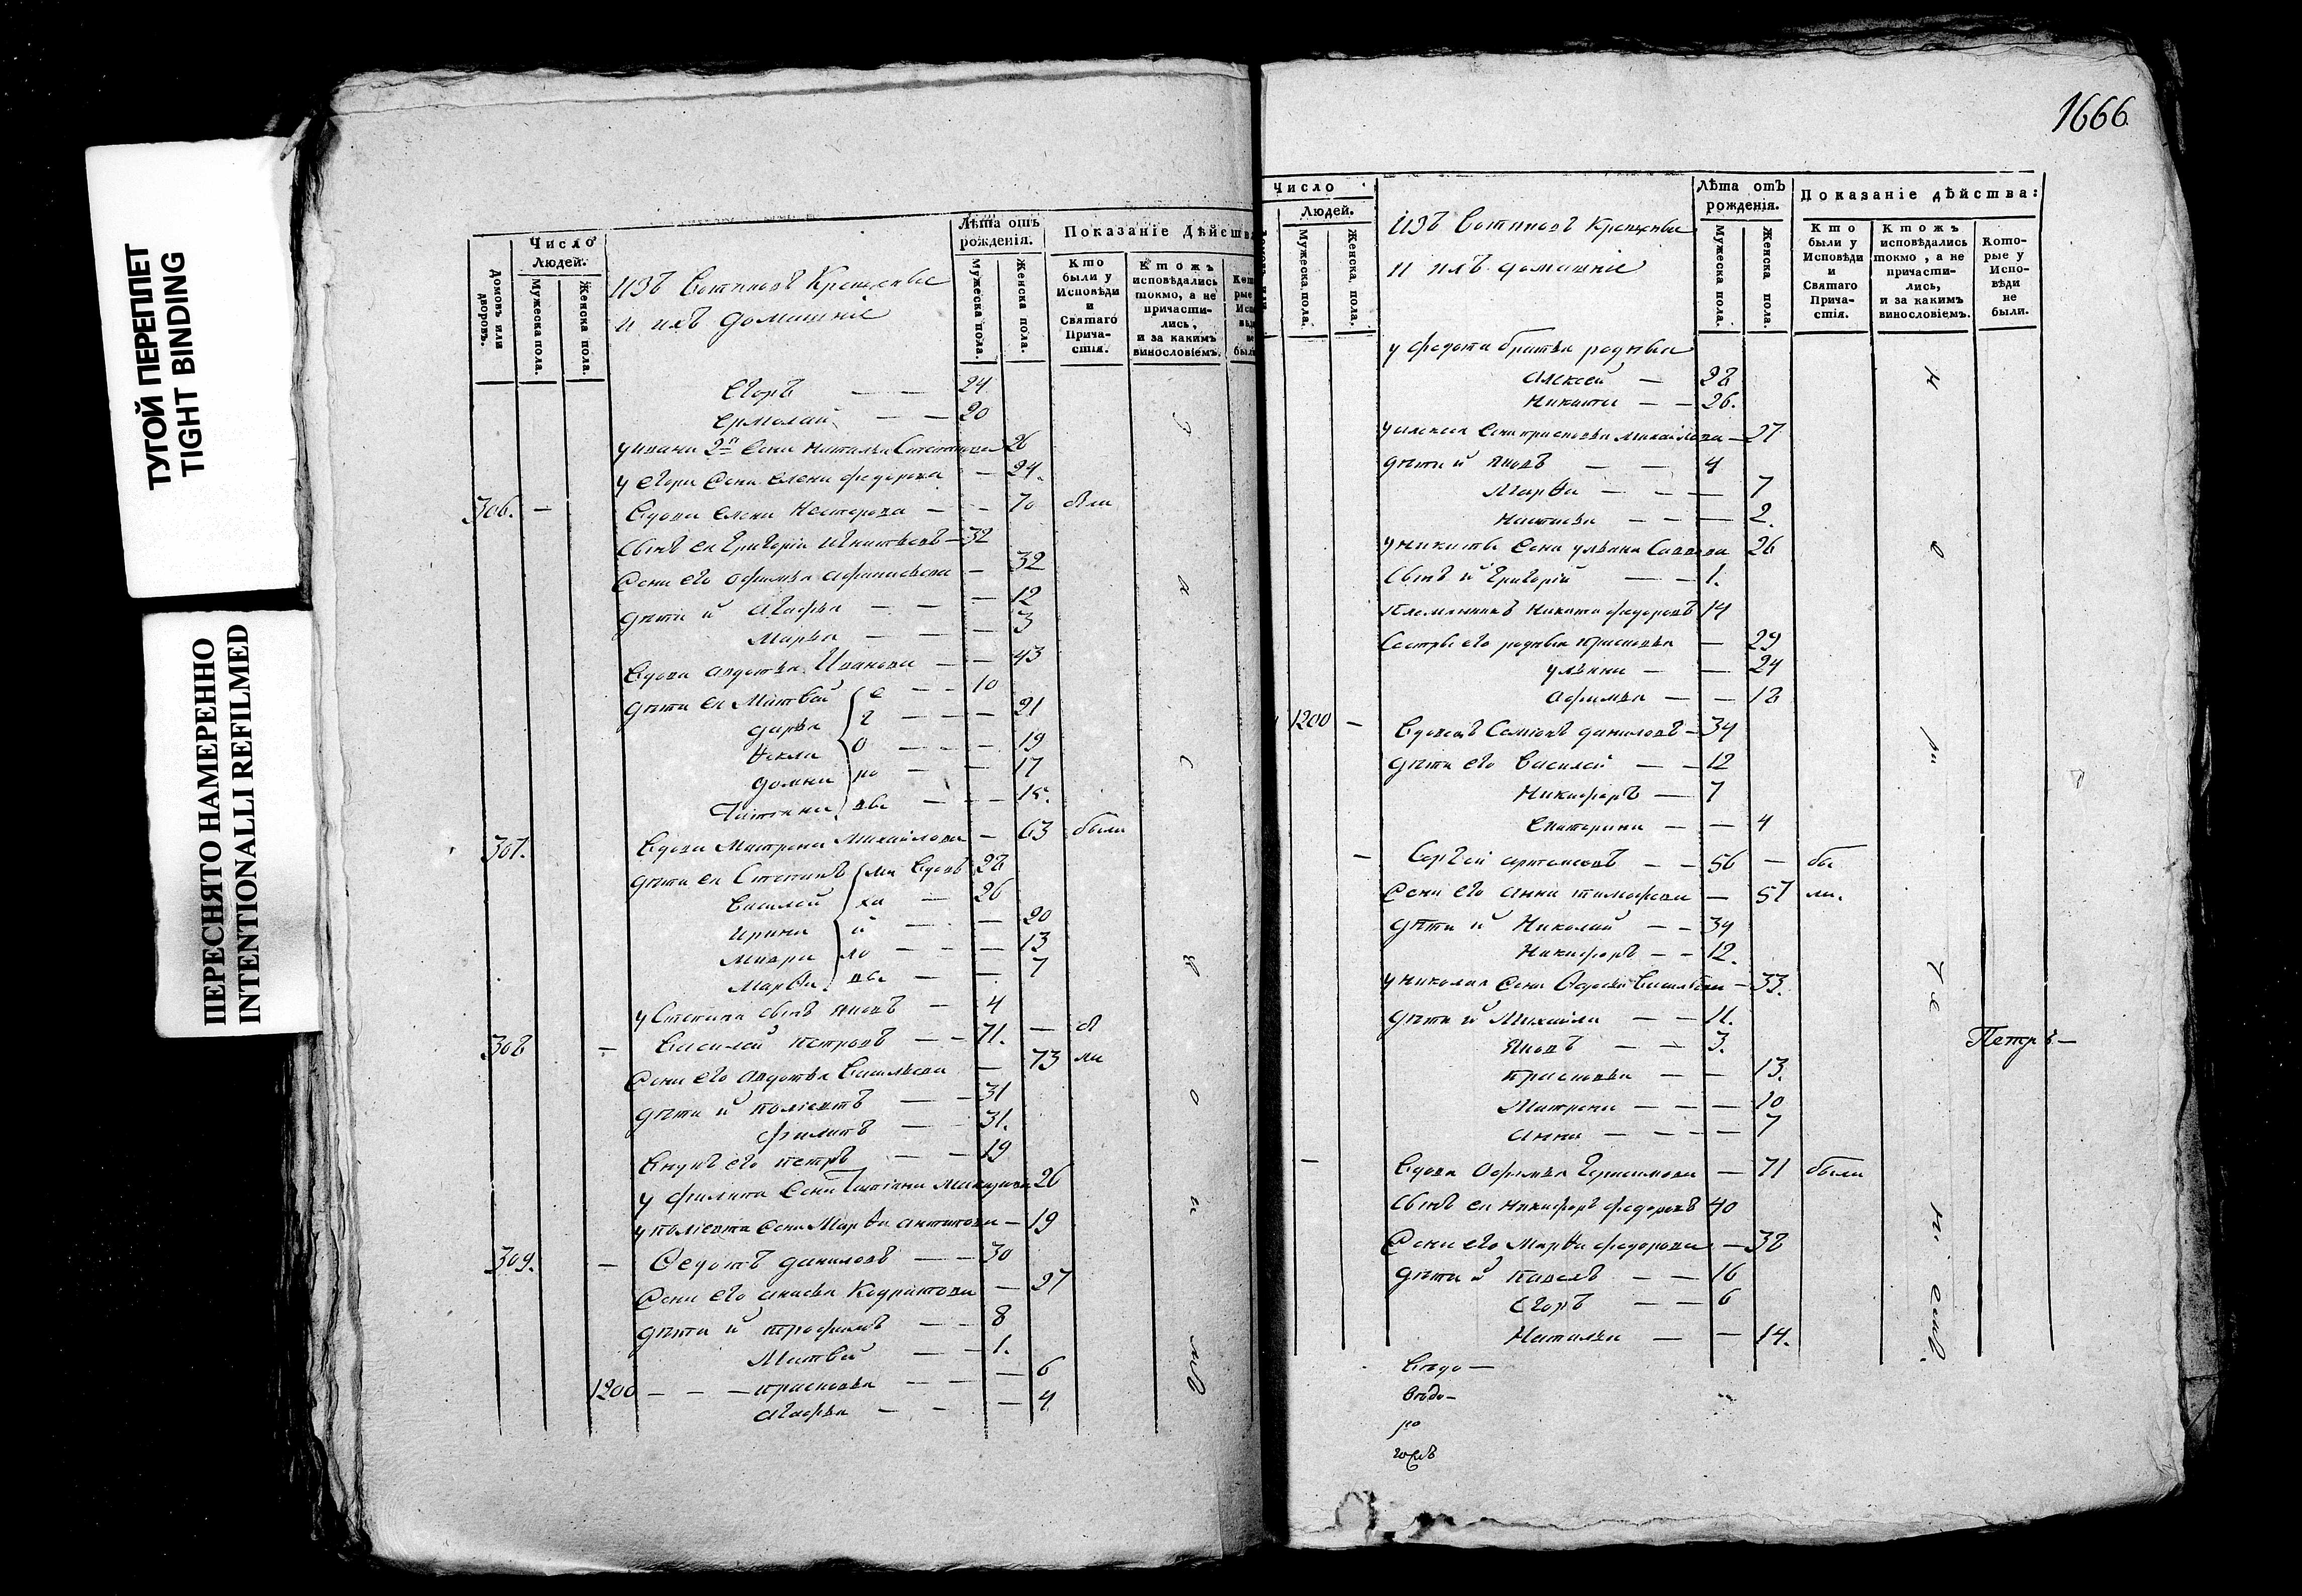 ТУГОЙ ПЕРЕПЛЕТ
TIGHT BINDING
ПЕРЕСНЯТО НАМЕРЕННО
INTENTIONALLI REFILMED
Домовъ или дворовъ.
Число
Людей.
Мужеска пола.
Женска пола.
изъ Вотяковъ Крещены
и ихъ домашніе
Лѣта отъ
рожденія.
Мужеска пола.
Женска пола.
Показаніе Дѣйств
Кто были у Исповѣди и Святаго Причастія.
Ктожъ исповѣдались токмо, а не причастились, и за какимъ винословіемъ.
Егоръ — — 24
Ермолай — — 20
у Ивана 2й жена Наталья Степанова 26
у Егора жена Елена Федорова — 24.
306. — Вдова Елена Нестерова — — 70 были
Сынъ ея Григорій Игнатьевъ — 32
Жена его Офимья Афанасьева — 32
дѣти и Агафья — — — 12
Марья — — — 3
Вдова Авдотья Иванова — — 43
дѣти ея Матвей е — — 10
Дарья г — — — 21
Ѳекла о — — — 19
Домна ро — — 17
Татьяна вы — — — 15.
307. Вдова Матрена Михайлова — 63 были
дѣти ея Степанъ ми вдовъ 28
Василей ха — 26
Ирина й — — 20
Мавра ло — — — 13
Марѳа вы — — 7
у Степана сынъ Яковъ — 4
308 — Василей Петровъ — — 71. — бы
Жена его Авдотья Васильева — 73 ли
дѣти и Поліектъ — — 31
Филипъ — — 31.
Внукъ его Петръ — — 19
у Филипа жена Татіана Макарова 26
у Поліекта жена Марѳа Антипова — 19
309. — Ѳедотъ Даниловъ — — 30
Жена его Анисья Кодратова — 27
дѣти и Трофимъ — — 8
Матвей — — 1.
1200 — — — Прасковья — — — 6
Агафья — — — 4
1666
Число
Людей.
Мужеска пола.
Женска пола.
изъ Вотяковъ Крещены
и ихъ домашніе
Лѣта отъ
рожденія.
Мужеска пола.
Женска пола.
Показаніе дѣйства:
Кто были у Исповѣди и Святаго Причастія.
Ктожъ исповѣдались токмо, а не причастились, и за какимъ винословіемъ.
Которые у Исповѣди не были.
у Федота братья родныя
Алексей — 28
Никита — — 26.
у Алексея жена Прасковья Михайлова — 27
дѣти и Яковъ — — 4
Марѳа — — — 7
Настасья — — — 2.
у Никиты жена Ульяна Саввина 26
Сынъ и Григорій — — 1.
Племянникъ Никита Федоровъ 14
Сестры его родныя Прасковья — 29
Ульяна — — 24
Афимья — — 18
1200 — Вдовецъ Семіонъ Даниловъ — 34
дѣти его Василей — — 12
Никифоръ — 7
Екатерина — — 4
— Сергей Артемьевъ — — 56 — бы
Жена его Анна Тимофеева — 57 ли.
дѣти и Николай — — 34
Никифоръ — — 12.
у Николая жена Ѳедосья Васильева — 33.
дѣти и Михайла — — 11.
Яковъ — — 3.
Петръ —
Прасковья — — 13.
Матрена — — — 10
Анна — — — 7
— Вдова Офимья Герасимова — 71 были
Сынъ ея Никифоръ Федоровъ 40
Жена его Марѳа Федорова — 38
дѣти и Павелъ — — 16
Егоръ — — 6
Наталья — — 14.